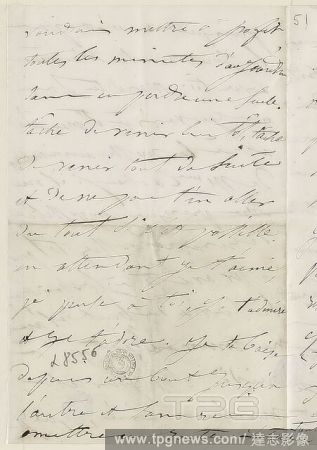 voudrais mettre à profit
51
toutes les minutes d'aujourd'hui
sans en perdre une seule.
tâche de venir bientôt, tâche
de venir tout de suite
et de ne pas t'en aller
du tout si c'est possible.
en attendant je t'aime,
je pense à toi, je t'admire
et je t'adore. Je te baise
28556
depuis un bout jusqu'à
l'autre et sans rien
omettre
TPG
www.tpgnews.com / 達志影像